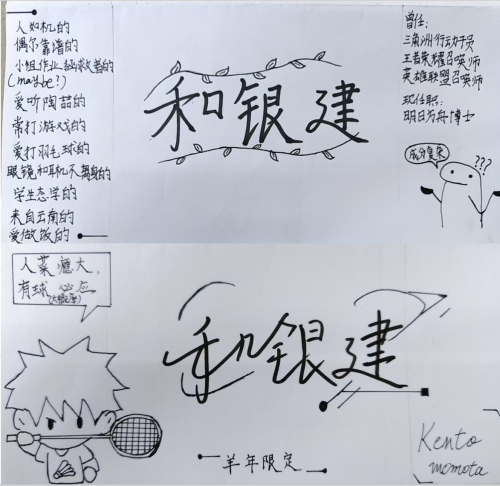 人如机的
偶尔靠谱的
小组作业拯救者的
(maybe?)
爱听陶喆的
常打游戏的
爱打羽毛球的
眼镜和耳机不离身的
学生态学的
来自云南的
爱做饭的
和银建
曾任:
三角洲行动干员
王者荣耀召唤师
英雄联盟召唤师
现任职:
明日方舟博士
成分复杂
???
人菜瘾大,
有球必应
和银建
羊年限定
Kento
momota